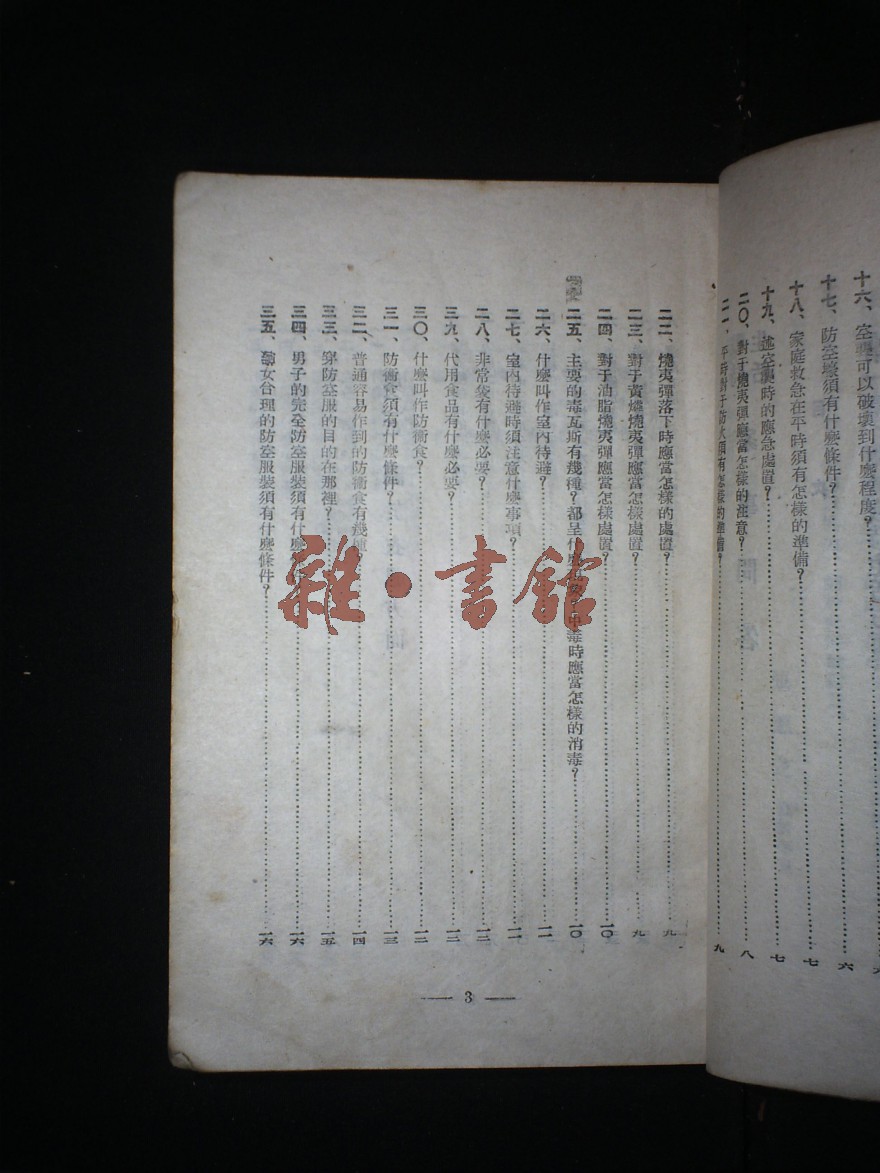 十六、空襲可以破壞到什麼程度？
六
十七、防空壕須有什麼條件？
六
十八、家庭救急在平時須有怎樣的準備？
七
十九、述空襲時的應急處置？
七
二〇、對于燒夷彈應當怎樣的注意？
八
二一、平時對于防火須有怎樣的準備？
九
二二、燒夷彈落下時應當怎樣的處置？
九
二三、對于黃燐燒夷彈應當怎樣處置？
九
二四、對于油脂燒夷彈應當怎樣處置？
一〇
二五、主要的毒瓦斯有幾種？都呈什麼 中毒時應當怎樣的消毒？
一〇
二六、什麼叫作室內待避？
一一
二七、室內待避時須注意什麼事項？
一一
二八、非常袋有什麼必要？
一二
三九、代用食品有什麼必要？
一二
三〇、什麼叫作防衛食？
一二
三一、防衛食須有什麼條件？
一三
三二、普通容易作到的防衛食有幾種？
一四
三三、穿防空服的目的在那裡？
一五
三四、男子的完全防空服裝須有什麼
一六
三五、婦女合理的防空服裝須有什麼條件？
一六
3
雜·書館